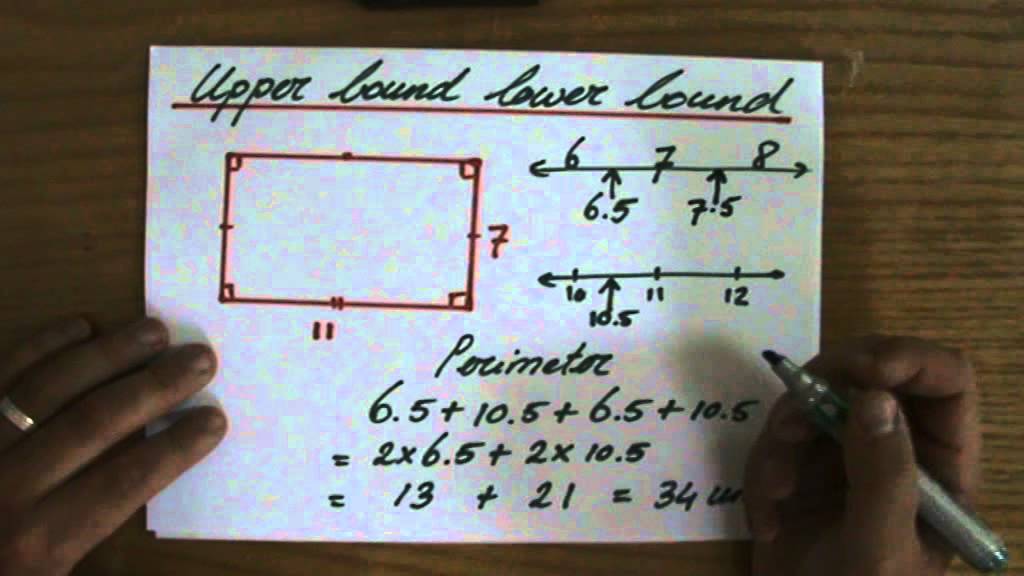 Upper bound lower bound
7
11
6 7 8
6.5 7.5
10 11 12
10.5
Perimeter
6.5 + 10.5 + 6.5 + 10.5
= 2 × 6.5 + 2 × 10.5
= 13 + 21 = 34